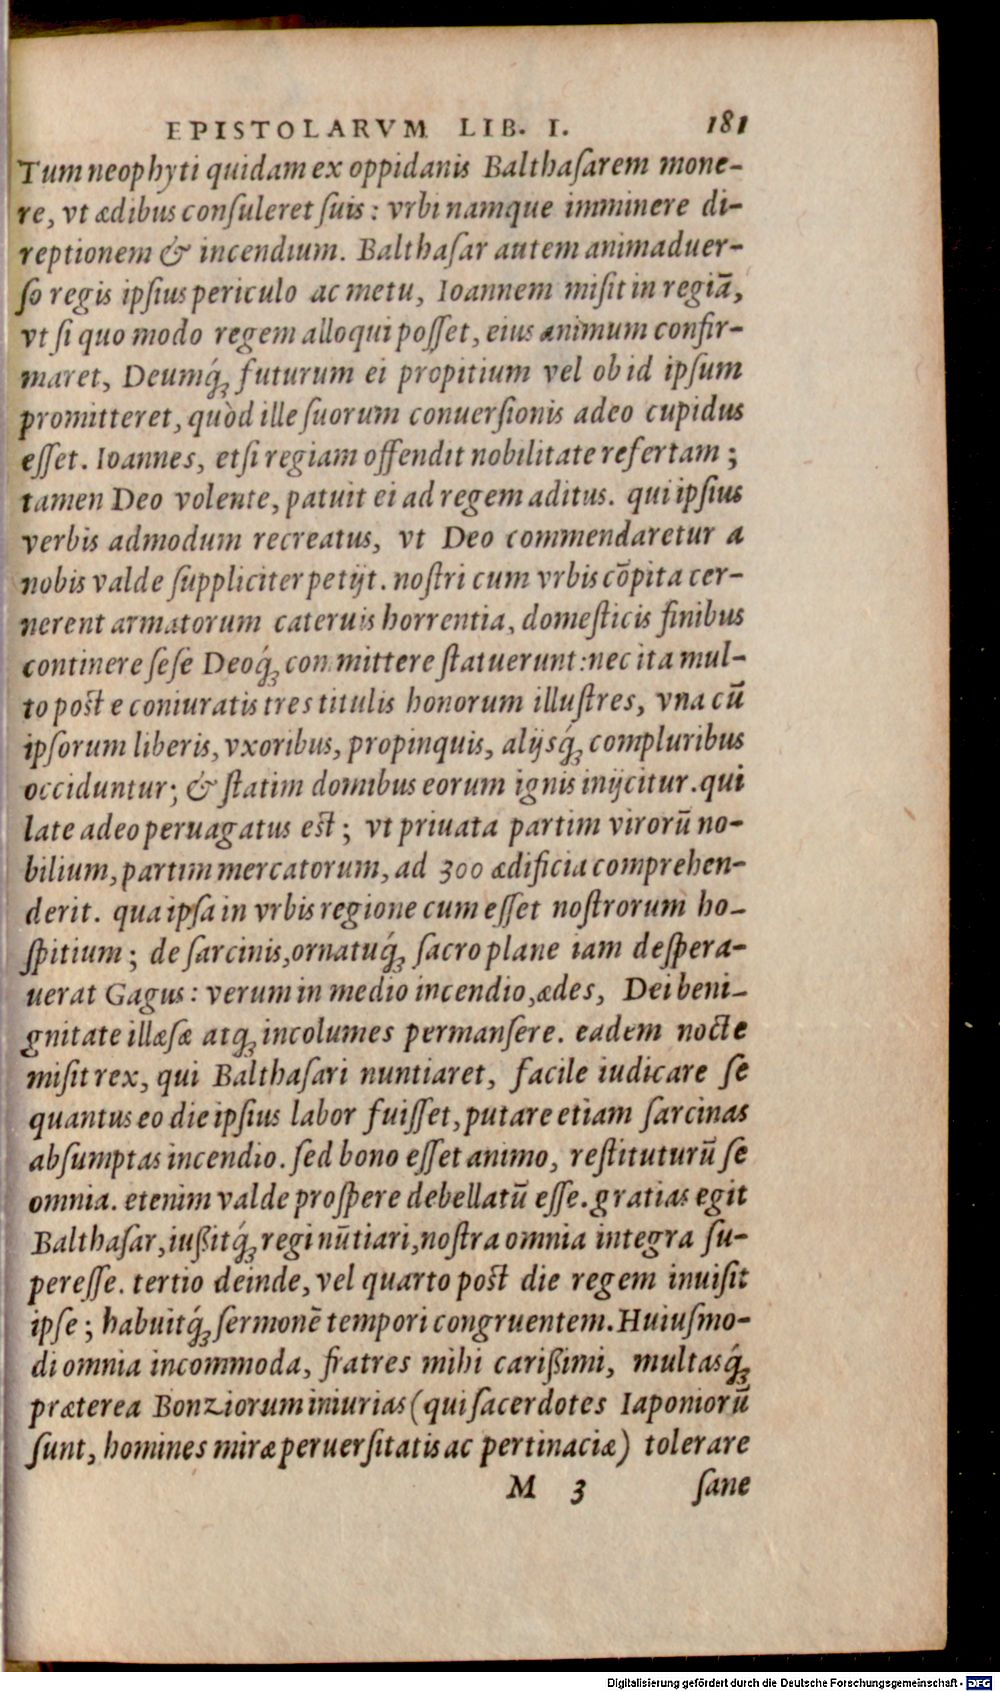 EPISTOLARVM LIB. I. 181
Tum neophyti quidam ex oppidanis Balthaſarem mone-
re, vt ædibus conſuleret ſuis: vrbi namque imminere di-
reptionem & incendium. Balthaſar autem animaduer-
ſo regis ipſius periculo ac metu, Ioannem miſit in regiā,
vt ſi quo modo regem alloqui poſſet, eius animum confir-
maret, Deumq́ꝫ futurum ei propitium vel ob id ipſum
promitteret, quòd ille ſuorum conuerſionis adeo cupidus
eſſet. Ioannes, etſi regiam offendit nobilitate refertam;
tamen Deo volente, patuit ei ad regem aditus. qui ipſius
verbis admodum recreatus, vt Deo commendaretur a
nobis valde ſuppliciter petijt. noſtri cum vrbis cōpita cer-
nerent armatorum cateruis horrentia, domeſticis finibus
continere ſeſe Deoq́ꝫ committere ſtatuerunt: nec ita mul-
to poſt e coniuratis tres titulis honorum illuſtres, vna cū
ipſorum liberis, vxoribus, propinquis, alijsq́ꝫ compluribus
occiduntur; & ſtatim domibus eorum ignis inijcitur. qui
late adeo peruagatus eſt; vt priuata partim virorū no-
bilium, partim mercatorum, ad 300 ædificia comprehen-
derit. qua ipſa in vrbis regione cum eſſet noſtrorum ho-
ſpitium; de ſarcinis, ornatuq́ꝫ ſacro plane iam deſpera-
uerat Gagus: verum in medio incendio, ædes, Dei beni-
gnitate illæſæ atqꝫ incolumes permanſere. eadem nocte
miſit rex, qui Balthaſari nuntiaret, facile iudicare ſe
quantus eo die ipſius labor fuiſſet, putare etiam ſarcinas
abſumptas incendio. ſed bono eſſet animo, reſtituturū ſe
omnia. etenim valde proſpere debellatū eſſe. gratias egit
Balthaſar, iußitq́ꝫ regi nūtiari, noſtra omnia integra ſu-
pereſſe. tertio deinde, vel quarto poſt die regem inuiſit
ipſe; habuitq́ꝫ ſermonē tempori congruentem. Huiuſmo-
di omnia incommoda, fratres mihi carißimi, multasq́ꝫ
præterea Bonziorum iniurias (qui ſacerdotes Iaponiorū
ſunt, homines miræ peruerſitatis ac pertinaciæ) tolerare
M 3 ſane
Digitalisierung gefördert durch die Deutsche Forschungsgemeinschaft - DFG